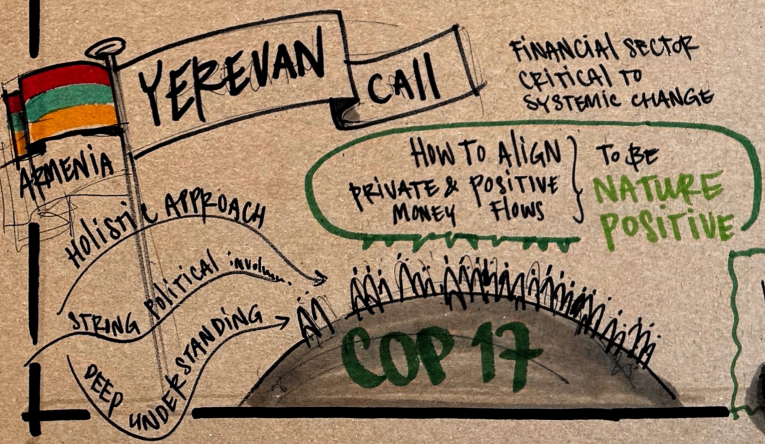 YEREVAN CALL
FINANCIAL SECTOR
CRITICAL TO
SYSTEMIC CHANGE
ARMENIA
HOW TO ALIGN
PRIVATE & POSITIVE
MONEY FLOWS
TO BE
NATURE
POSITIVE
HOLISTIC APPROACH
STRING POLITICAL
DEEP UNDERSTANDING
COP 17